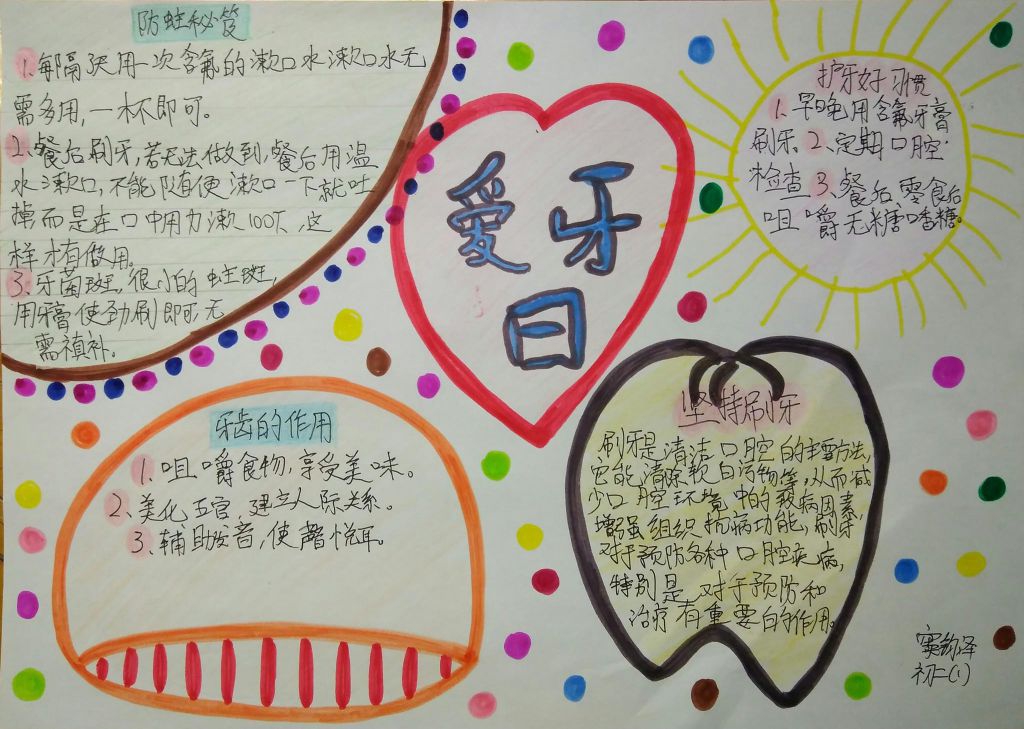 防蛀秘笈
1.每隔天用一次含氟的漱口水漱口水无
需多用,一杯即可。
2.餐后刷牙,若无法做到,餐后用温
水漱口,不能随便漱口一下就吐
掉而是在口中用力漱100下,这
样才有做用。
3.牙菌斑,很小的蛀斑,
用牙膏使劲刷即可无
需填补。
爱牙
日
护牙好习惯
1.早晚用含氟牙膏
刷牙。2、定期口腔
检查3、餐后、零食后
咀嚼无糖口香糖。
牙齿的作用
1.咀嚼食物,享受美味。
2、美化五官,建立人际关系。
3、辅助发音,使声悦耳。
坚持刷牙
刷牙是清洁口腔的主要方法,
它能清除软白污物等,从而减
少口腔环境中的致病因素,
增强组织抗病功能,刷牙
对于预防各种口腔疾病,
特别是,对于预防和
治疗有重要的作用。
初二(1)